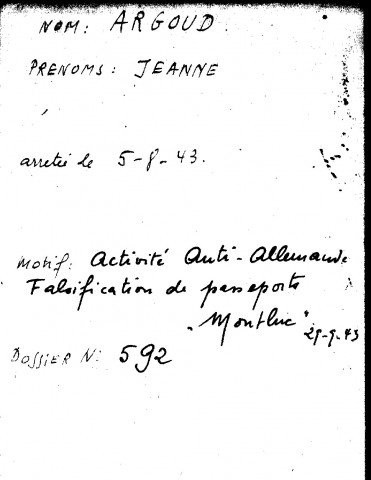 NOM: ARGOUD
PRENOMS: JEANNE
arretée le 5-8-43.
Motif: Activité Anti-Allemande
Falsification de passeports
"Montluc" 29-9-43
DOSSIER N: 592